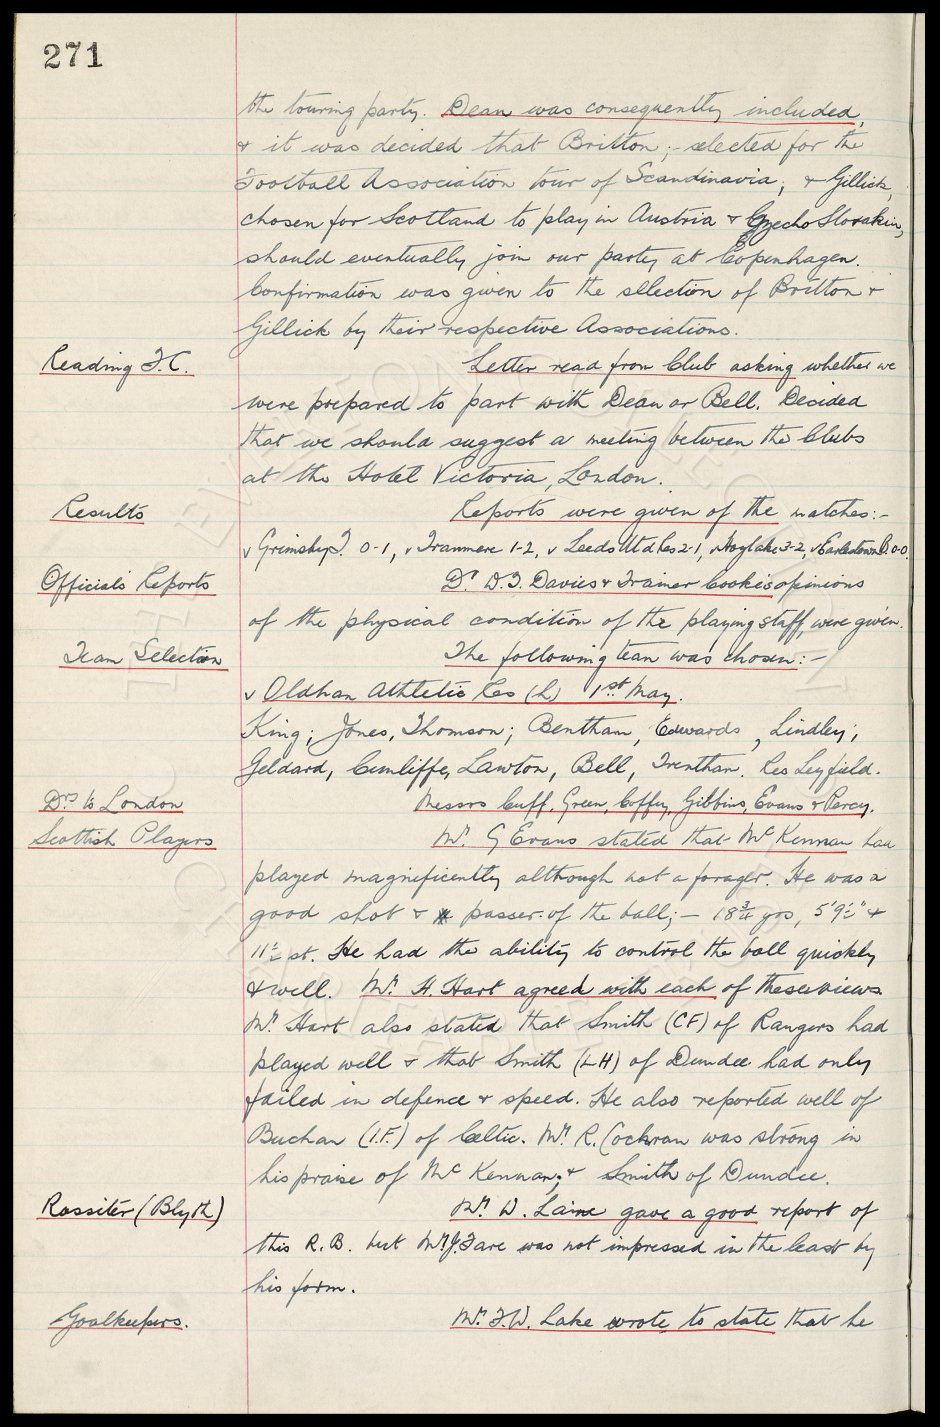 271
the touring party. Dean was consequently included,
& it was decided that Britton; - selected for the
Football Association tour of Scandinavia; & Gillick,
chosen for Scotland to play in Austria & Czecho Slovakia,
should eventually join our party at Copenhagen.
Confirmation was given to the selection of Britton &
Gillick by their respective Associations.
Reading F.C. Letter read from Club asking whether we
were prepared to part with Dean or Bell. Decided
that we should suggest a meeting between the Clubs
at the Hotel Victoria, London.
Results Reports were given of the matches:-
v Grimsby T. 0-1, v Tranmere 1-2, v Leeds Utd Res 2-1, v Hoylake 3-2, v Earlestown B. 0-0.
Official's Reports Dr D.T. Davies & Trainer Cooke's opinions
of the physical condition of the playing staff, were given.
Team Selection The following team was chosen:-
v Oldham Athletic Res (L) 1st May.
King; Jones, Thomson; Bentham, Edwards, Lindley;
Geldard, Cunliffe, Lawton, Bell, Trentham. Res Leyfield.
Drs to London Messrs Cuff, Green, Coffey, Gibbins, Evans & Percy.
Scottish Players Mr. G Evans stated that McKennan had
played magnificently although not a forager. He was a
good shot & passer of the ball; - 18¾ yrs, 5'9½" &
11½ st. He had the ability to control the ball quickly
& well. Mr. H. Hart agreed with each of these views.
Mr. Hart also stated that Smith (CF) of Rangers had
played well & that Smith (LH) of Dundee had only
failed in defence & speed. He also reported well of
Buchan (I.F.) of Celtic. Mr. R. Cochran was strong in
his praise of McKennan, & Smith of Dundee.
Rossiter (Blyth) Mr. W. Laine gave a good report of
this R.B. but Mr J. Fare was not impressed in the least by
his form.
Goalkeepers. Mr. F.W. Lake wrote to state that he